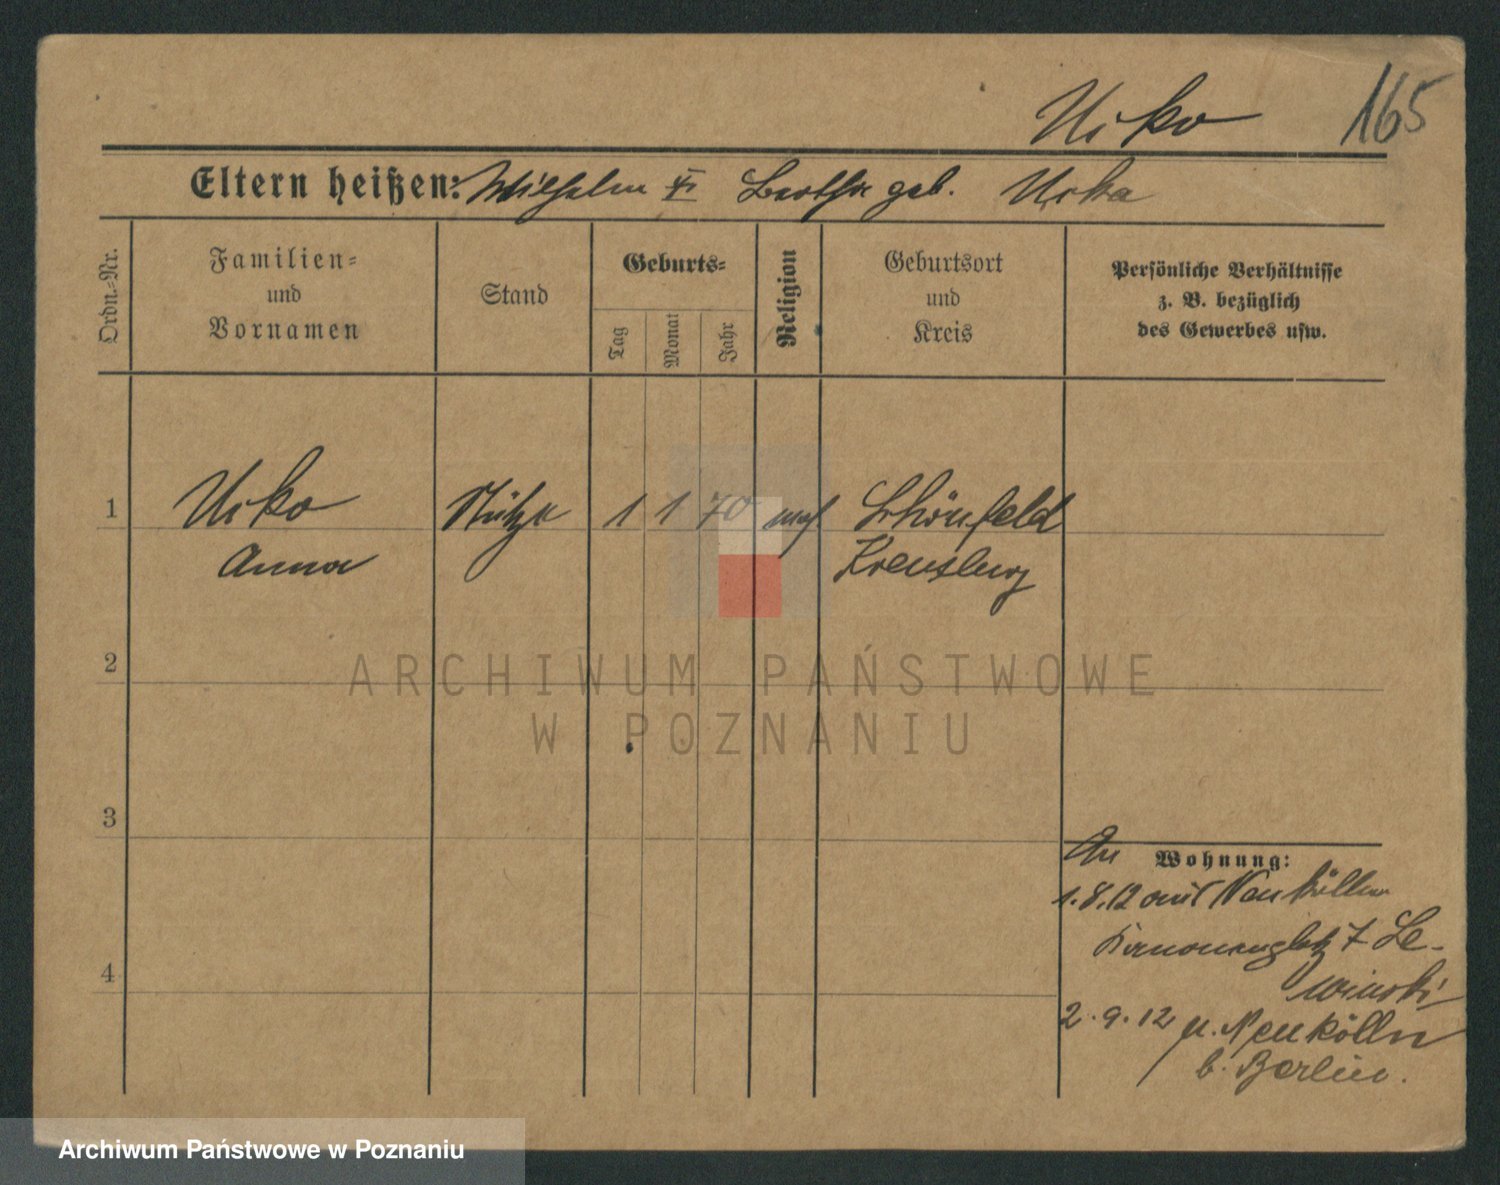 Urko 165
Eltern heißen: Wilhelm u. Berthe geb. Urka
Ordn.-Nr.
Familien-
und
Vornamen
Stand
Geburts-
Tag Monat Jahr
Religion
Geburtsort
und
Kreis
Persönliche Verhältnisse
z. B. bezüglich
des Gewerbes usw.
1 Urko Stütze 1 1 70 Schönfeld
Anna Kreuzburg
2
ARCHIWUM PAŃSTWOWE
W POZNANIU
3
An Wohnung:
1.8.12 aus Neukölln
7 Le-
winski
4
2.9.12 n. Neukölln
b. Berlin.
Archiwum Państwowe w Poznaniu